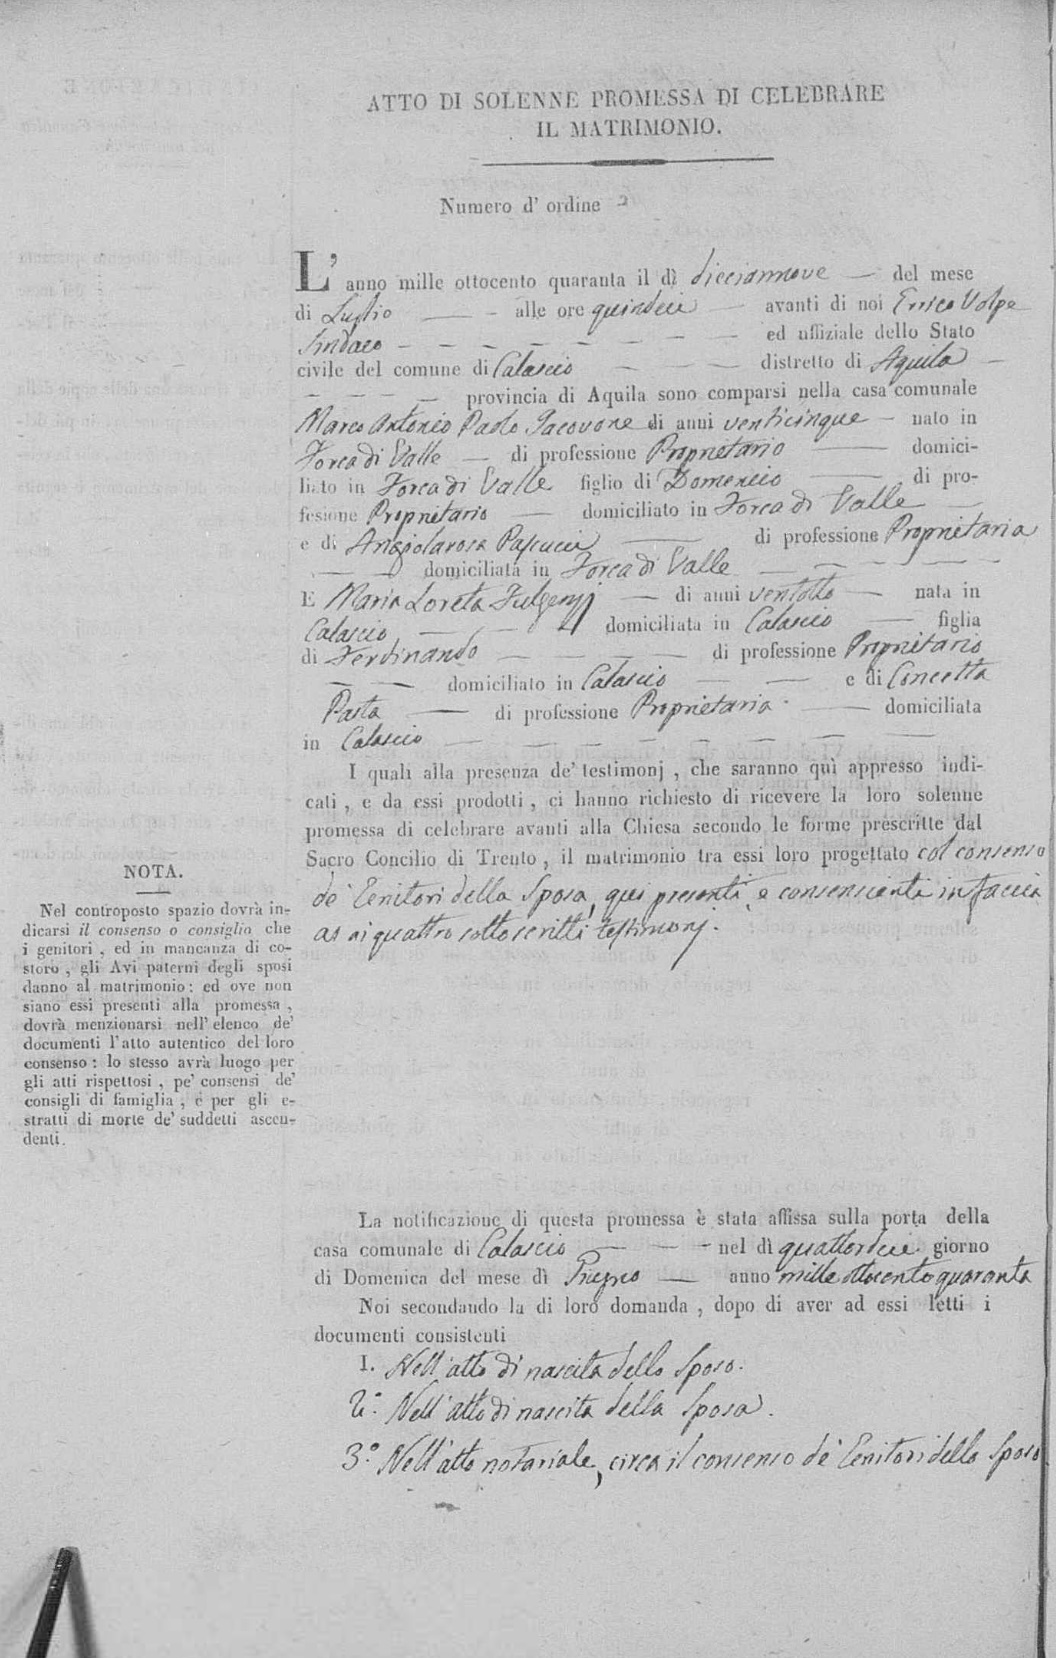 ATTO DI SOLENNE PROMESSA DI CELEBRARE
IL MATRIMONIO.
Numero d' ordine 2
L' anno mille ottocento quaranta il dì dieciannove — del mese
di Luglio — - alle ore quindeci — avanti di noi Errico Volpe
Sindaco - - - - - - - - ed uffiziale dello Stato
civile del comune di Calascio - - - distretto di Aquila -
- - - - provincia di Aquila sono comparsi nella casa comunale
Marco Antonio Paolo Iacovone di anni venticinque - nato in
Forca di Valle - di professione Proprietario — domici-
liato in Forca di Valle figlio di Domenico — di pro-
fesione Proprietario — domiciliato in Forca di Valle -
e di Angiolarosa Pascucci — di professione Proprietaria
— - domiciliata in Forca di Valle — - - - -
E Maria Loreta Fulgenzj — di anni ventotto — nata in
Calascio, — - - domiciliata in Calascio — figlia
di Ferdinando - - - - - di professione Proprietario
— — domiciliato in Calascio — — e di Concetta
Pasta — di professione Proprietaria — domiciliata
in Calascio — - - - - - - -
I quali alla presenza de' testimonj , che saranno quì appresso indi-
cati , e da essi prodotti , ci hanno richiesto di ricevere la loro solenne
promessa di celebrare avanti alla Chiesa secondo le forme prescritte dal
Sacro Concilio di Trento , il matrimonio tra essi loro progettato col consenso
de' Genitori della Sposa, qui presenti, e consensienti in faccia
ad ai quattro sottoscritti testimonj.
NOTA.
Nel controposto spazio dovrà in-
dicarsi il consenso o consiglio che
i genitori , ed in mancanza di co-
storo , gli Avi paterni degli sposi
danno al matrimonio : ed ove non
siano essi presenti alla promessa ,
dovrà menzionarsi nell' elenco de'
documenti l'atto autentico del loro
consenso : lo stesso avrà luogo per
gli atti rispettosi , pe' consensi de'
consigli di famiglia , e per gli e-
stratti di morte de' suddetti ascen-
denti.
La notificazione di questa promessa è stata affissa sulla porta della
casa comunale di Calascio — - - nel dì quattordeci giorno
di Domenica del mese dì Giugno — anno mille ottocento quaranta
Noi secondando la di loro domanda , dopo di aver ad essi letti i
documenti consistenti
1. Nell'atto di nascita dello Sposo.
2.° Nell'atto di nascita della Sposa.
3.° Nell'atto notariale, circa il consenso de' Genitori dello Sposo